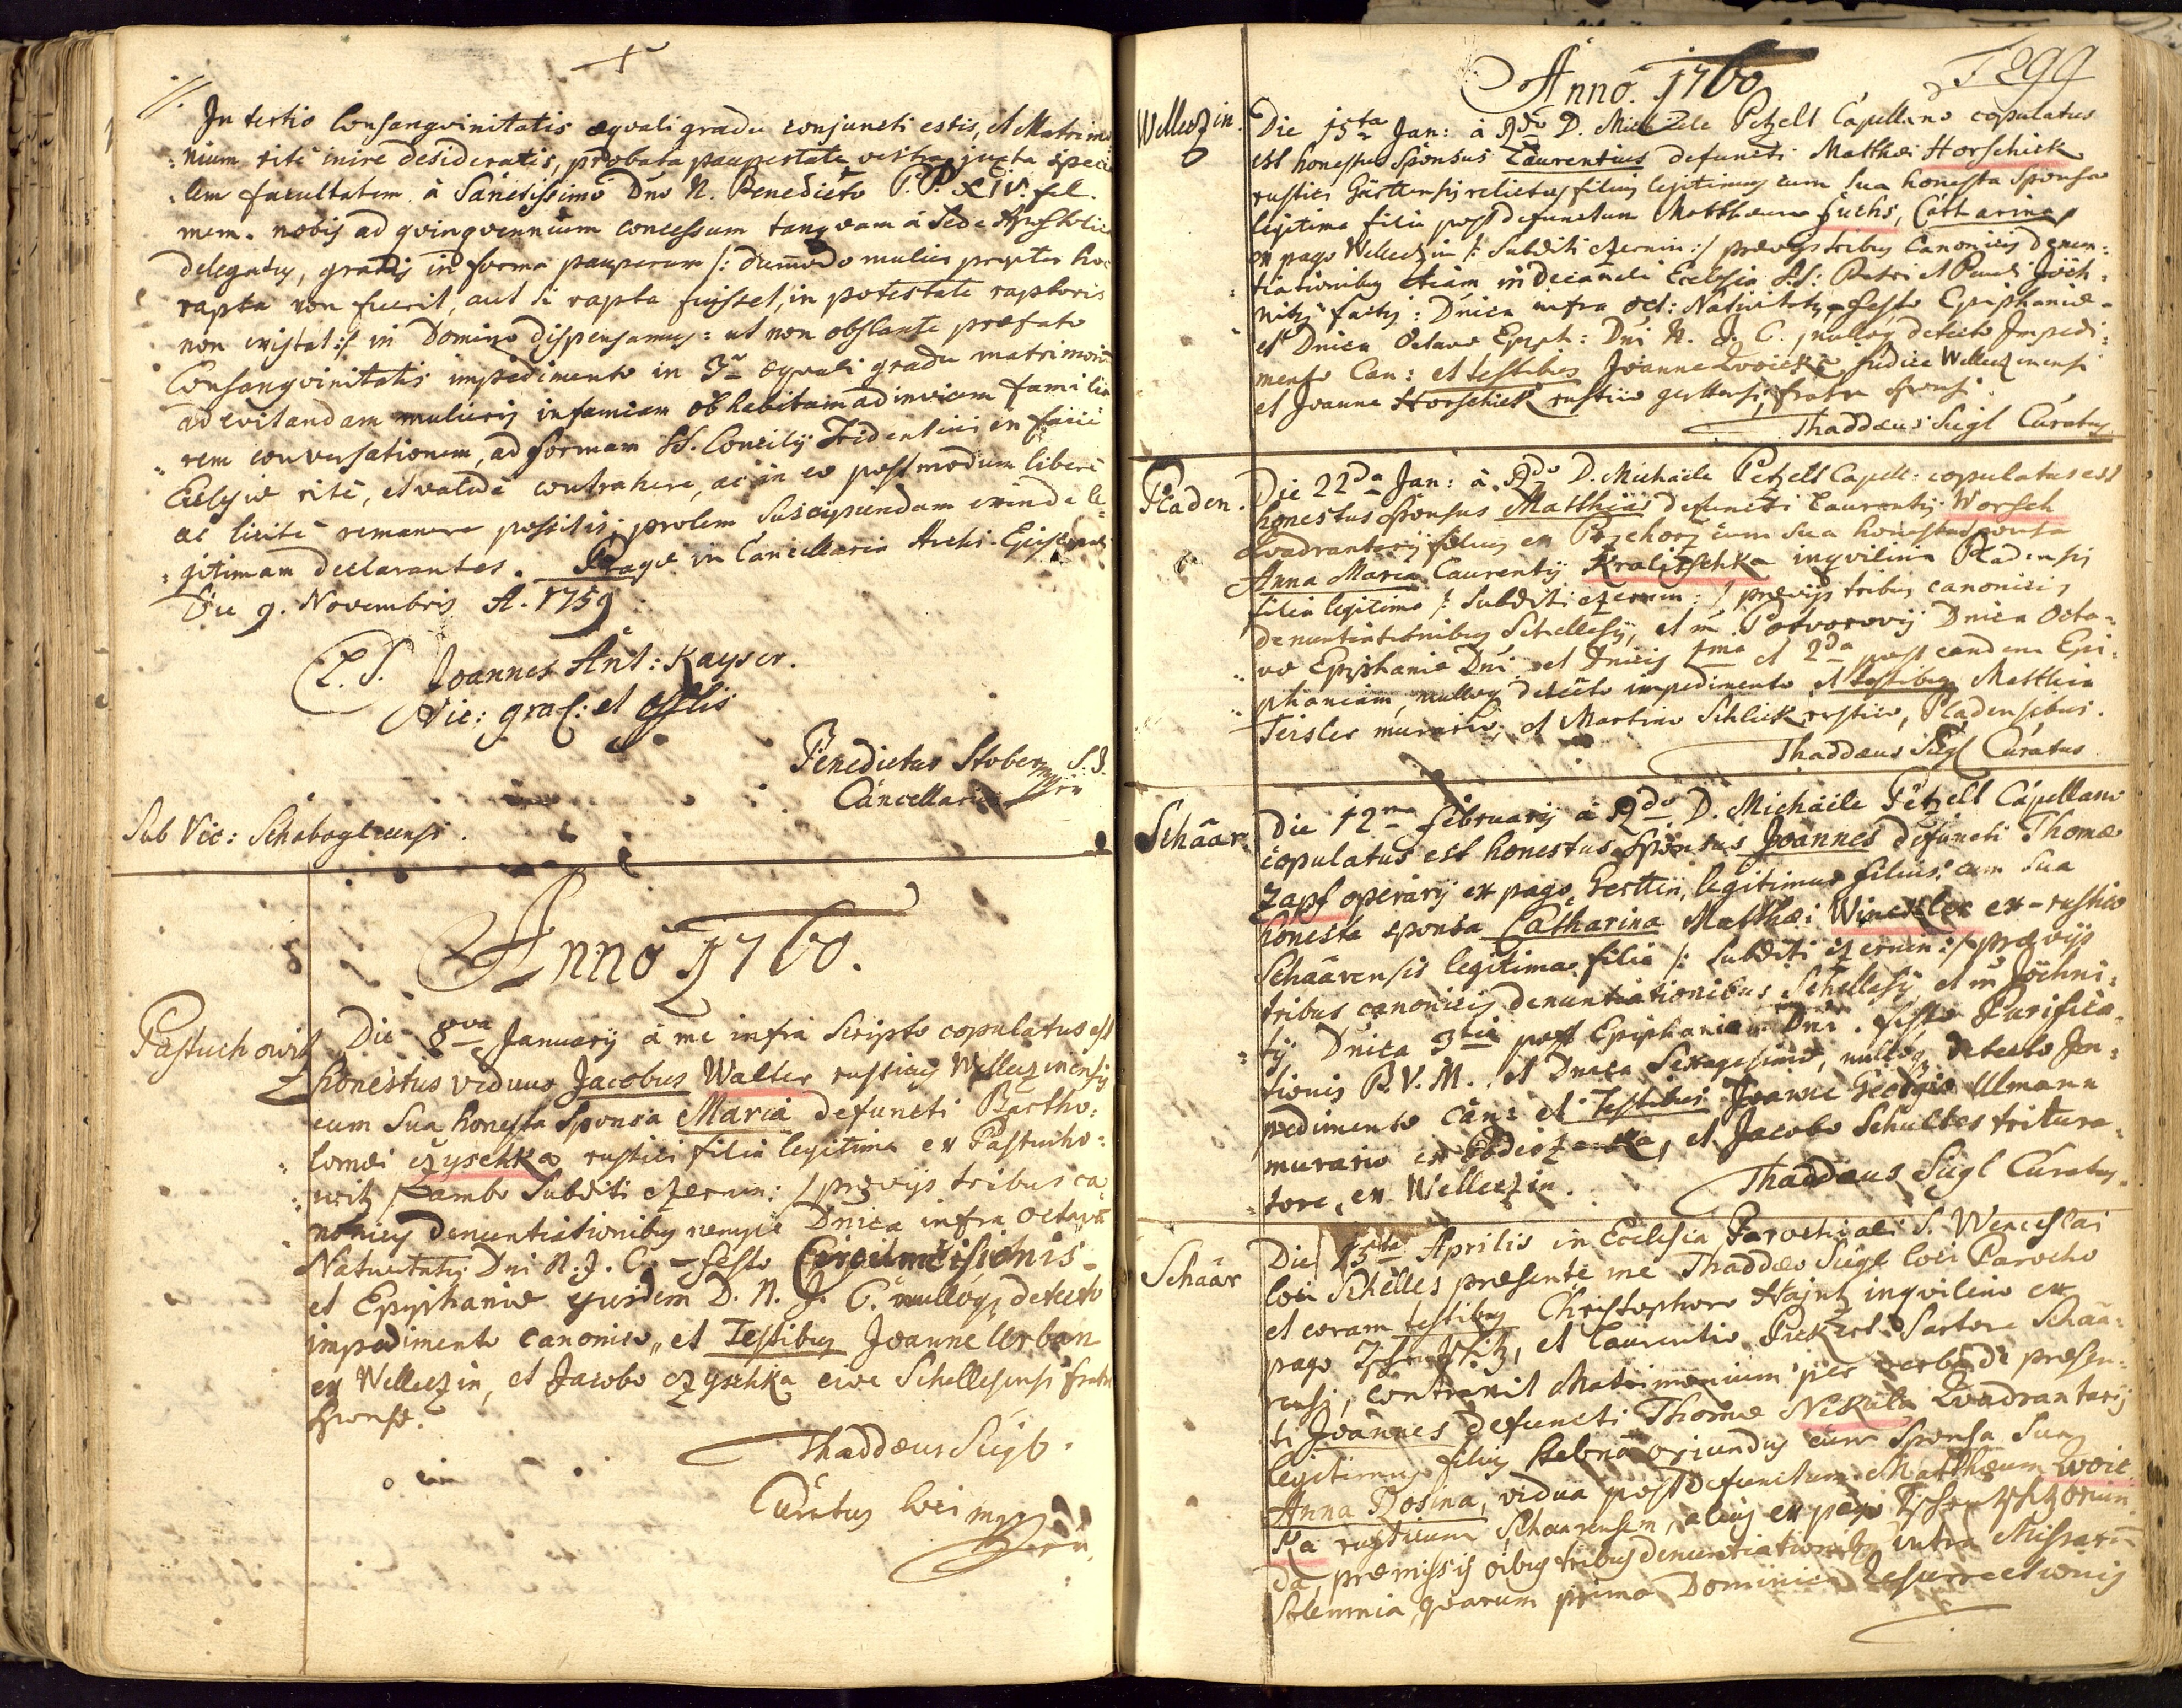 //.
In tertio Consangvinitatis aeqvali gradu conjuncti estis, et Matrimo
:nium rite inire desideratis, probata paupertate vestra juxta specia
:lem facultatem à Sanctissimo Dno N. Benedicto P.P. XIV. fel.
mem. nobis ad qvinqvennium concessam tanqvam à Sede Apostolica
delegatus, gratis in forma pauperum /: dummodo mulier propter hoc
rapta non fuerit, aut si rapta fuisset, in potestate raptoris
non existat :/ in Domino dispensamus: ut non obstante praefato
Consangvinitatis impedimento in 3o aeqvali gradu matrimonium
ad evitandam mulieris infamiam ob habitam ad invicem familia
rem conversationem, ad formam SS. Concilij Tridentini in facie
Ecclesiae rite, et valide contrahere, ac in eo postmodum libere
ac licite remanere possitis; prolem suscipiendam exinde le:
:gitimam declarantes. Pragae in Cancellaria Archi-Episcopali
Die 9. Novembris A. 1759
L.S. Joannes Ant: Kayser.
Vic: gral: et Offlis
Benedictus Stober mpp S.J.
Cancellarius
Sub Vic: Schaboglucensi.
Anno 1760.
Pastuchowitz
Die 8va January à me infra scripto copulatus est
honestus viduus Jacobus Walter rusticus Welleczinensis
cum sua honesta Sponsa Maria defuncti Bartho:
lomaei Czyschka rustici filia legitima ex Pastucho:
:witz /: ambo Subditi Czernin: / praevijs tribus ca
nonicis denuntiationibus nempe Dnica infra octavam
Nativitatis Dni N. J. C. – festo Circumcisionis –
et Epiphaniae ejusdem D. N. J. C. nulloq detecto
impedimento canonico, et Testibus Joanne Urban
ex Welleczin, et Jacobo Czyschka cive Schellesensi fratre
sponsae.
Thaddaeus Sügl
Curatus loci mpp
Anno. 1760
299
Welleczin.
Die 15ta Jan: à Rdo D. Michaele Petzelt Capellano copulatus
est honestus Sponsus Laurentius defuncti Matthaei Horschick
rustici Gästtensis relictus filius legitimus cum sua honesta sponsa
legitima filia post defunctum Matthaeum Fuchs, Catharina
ex pago Welleczin /: Subditi Czernin :/ praevijs tribus Canonicis denun:
tiationibus etiam in Ecclesia S.S: Petri et Pauli Jech:
nitij factis: Dnica infra oct: Nativitatis festo Epiphaniae –
et Dnica Octava Epiph: Dni N. J. C. nulloq detecto Impedi:
mento Can: et testibus Joanne Zwicka judice Welleczinensi
et Joanne Horschick rustico fratre sponsi.
Thaddaeus Sügl Curatus
Pladen.
Die 22da Jan: à Rdo D. Michaele Petzelt Capell: copulatus est
honestus Sponsus Matthias defuncti Laurentij Worsch
Qvadrantarij filius ex Przehorz cum sua honesta sponsa
Anna Maria Laurentij Kralitschka inqvilini Pladensis
filia legitima /: Subditi Czernin: / praevijs tribus canonicis
denuntiationibus Schellesij, et in Potvorovij Dnica Octa:
va Epiphaniae Dni et Dnicis 1ma et 2da post eandem Epi:
phaniam, nulloq detecto impedimento et testibus Matthia
Teisler murario, et Martino Schlick rustico, Pladensibus.
Thaddaeus Sügl Curatus
Schäär.
Die 12ma February à Rdo D. Michaele Petzelt Capellano
copulatus est honestus Sponsus Joannes defuncti Thomae
Zapf operarij ex pago Gesttin, legitimus filius, cum sua
honesta sponsa Catharina Matthaei Winckler ex-rustico
Schäärensis legitima filia /: Subditi Czernin :/ praevijs
tribus canonicis denuntiationibus Schellesij et in Jechni:
tij Dnica 3tia post Epiphaniam Dni. festo Purifica:
tionis B. V. M. et Dnica Sexagesima, nulloq detecto Im:
pedimento can: et testibus Joanne Georgio Ulmann
murario ex, et Jacobo Schultes tritura:
tore, ex Welleczin.
Thaddaeus Sügl Curatus.
Schäär
Die 15ta Aprilis in Ecclesia Parochiali S. Wenceslai
loci Schelles praesente me Thaddaeo Sügl loci Parocho
et coram testibus Christophoro Hajnz inqvilino ex
pago, et Laurentio Pickert Sartore Schää:
rensi, contraxit Matrimonium per verba de praesen:
ti Joannes defuncti Thomae Nikula Qvadrantarij
legitimus filius oriundus cum Sponsa sua
Anna Rosina, vidua post defunctum Matthaeum Zwic
ka rusticum Schaarensem, alias ex pago oriun
da, praemissis oibus tribus denuntiationibus intra Missarum
Solemnia, qvarum prima Dominica Resurrectionis